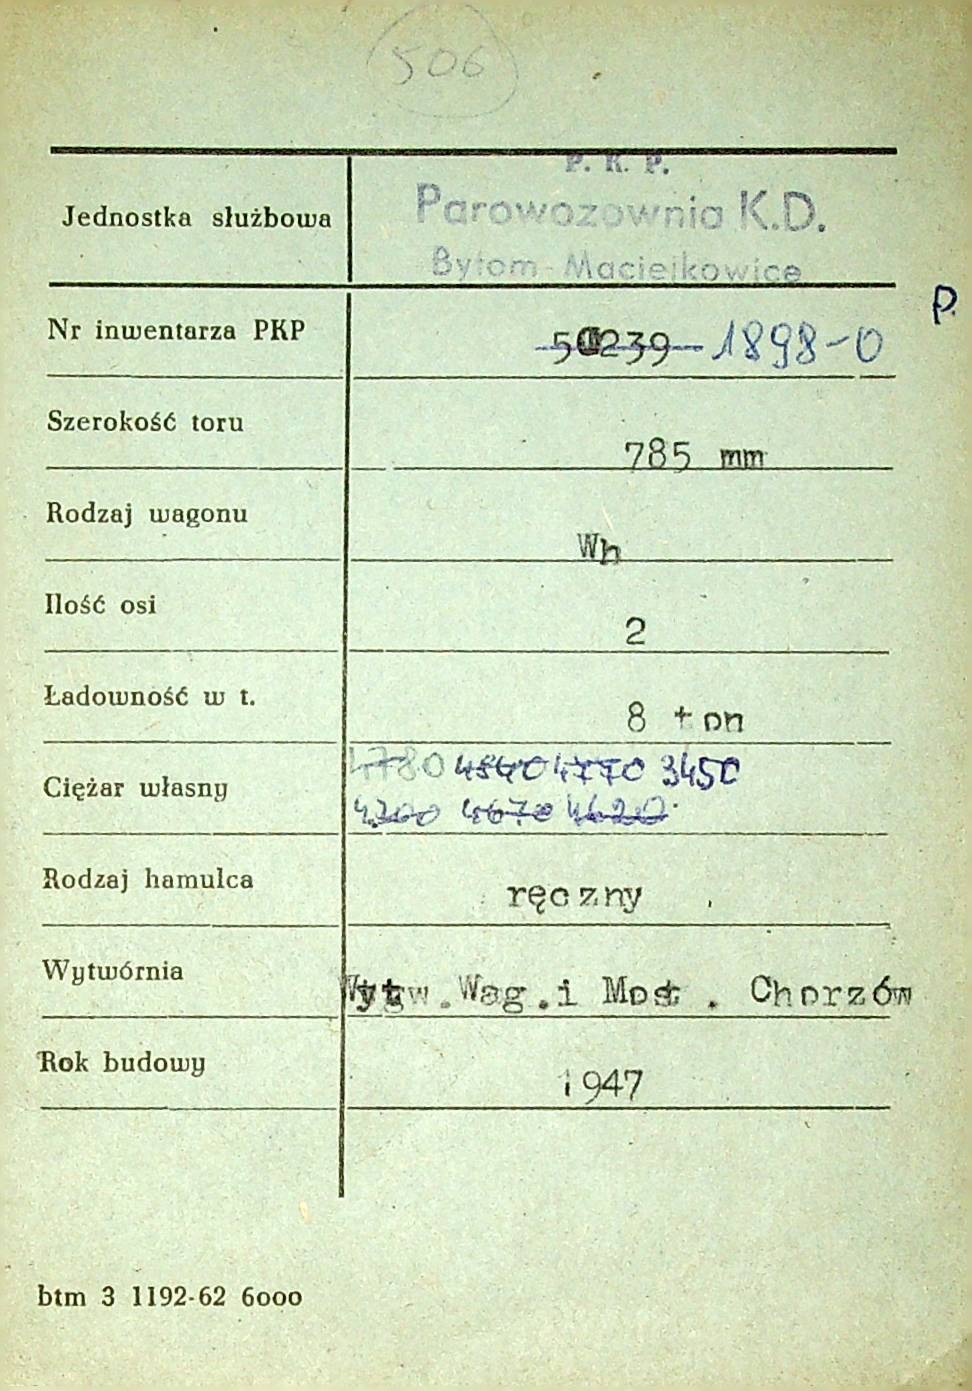 506
P. K. P.
Jednostka służbowa Parowozownia K.D.
Bytom-Maciejkowice
P.
Nr inwentarza PKP 1898-0
Szerokość toru 785 mm
Rodzaj wagonu Wh
Ilość osi 2
Ładowność w t. 8 ton
4780 4840 4770 3450
Ciężar własny
4200 4670 4620
Rodzaj hamulca ręczny
Wytwórnia Wytw.Wag.i Most. Chorzów
Rok budowy 1947
btm 3 1192-62 6000